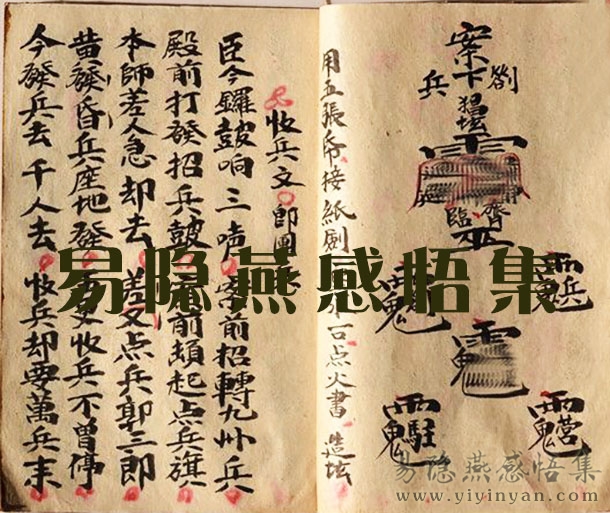 案下
兵
臨
用五張帋接紙劄
点火書造坛
收兵文 即圖
臣今鑼鼓响三声 前招轉九州兵
殿前打發招兵鼓 前頭起点兵旗
本師差人急却去 差文点兵郭三郎
黄發昏兵座地發 文收兵不曾停
今發兵去千人去 收兵却要萬兵末
易隐燕感悟集
易隐燕感悟集
www.yiyinyan.com